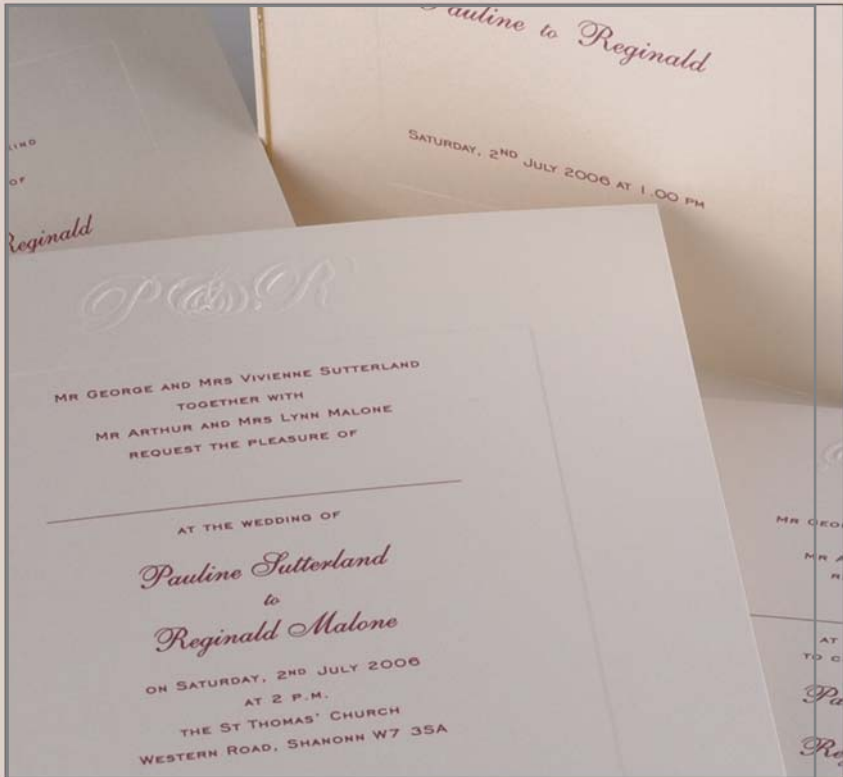 Pauline to Reginald
SATURDAY, 2ND JULY 2006 AT 1.00 PM
OF
Reginald
P & R
MR GEORGE AND MRS VIVIENNE SUTTERLAND
TOGETHER WITH
MR ARTHUR AND MRS LYNN MALONE
REQUEST THE PLEASURE OF
AT THE WEDDING OF
Pauline Sutterland
to
Reginald Malone
ON SATURDAY, 2ND JULY 2006
AT 2 P.M.
THE ST THOMAS' CHURCH
WESTERN ROAD, SHANONN W7 3SA
MR
MR
AT
TO